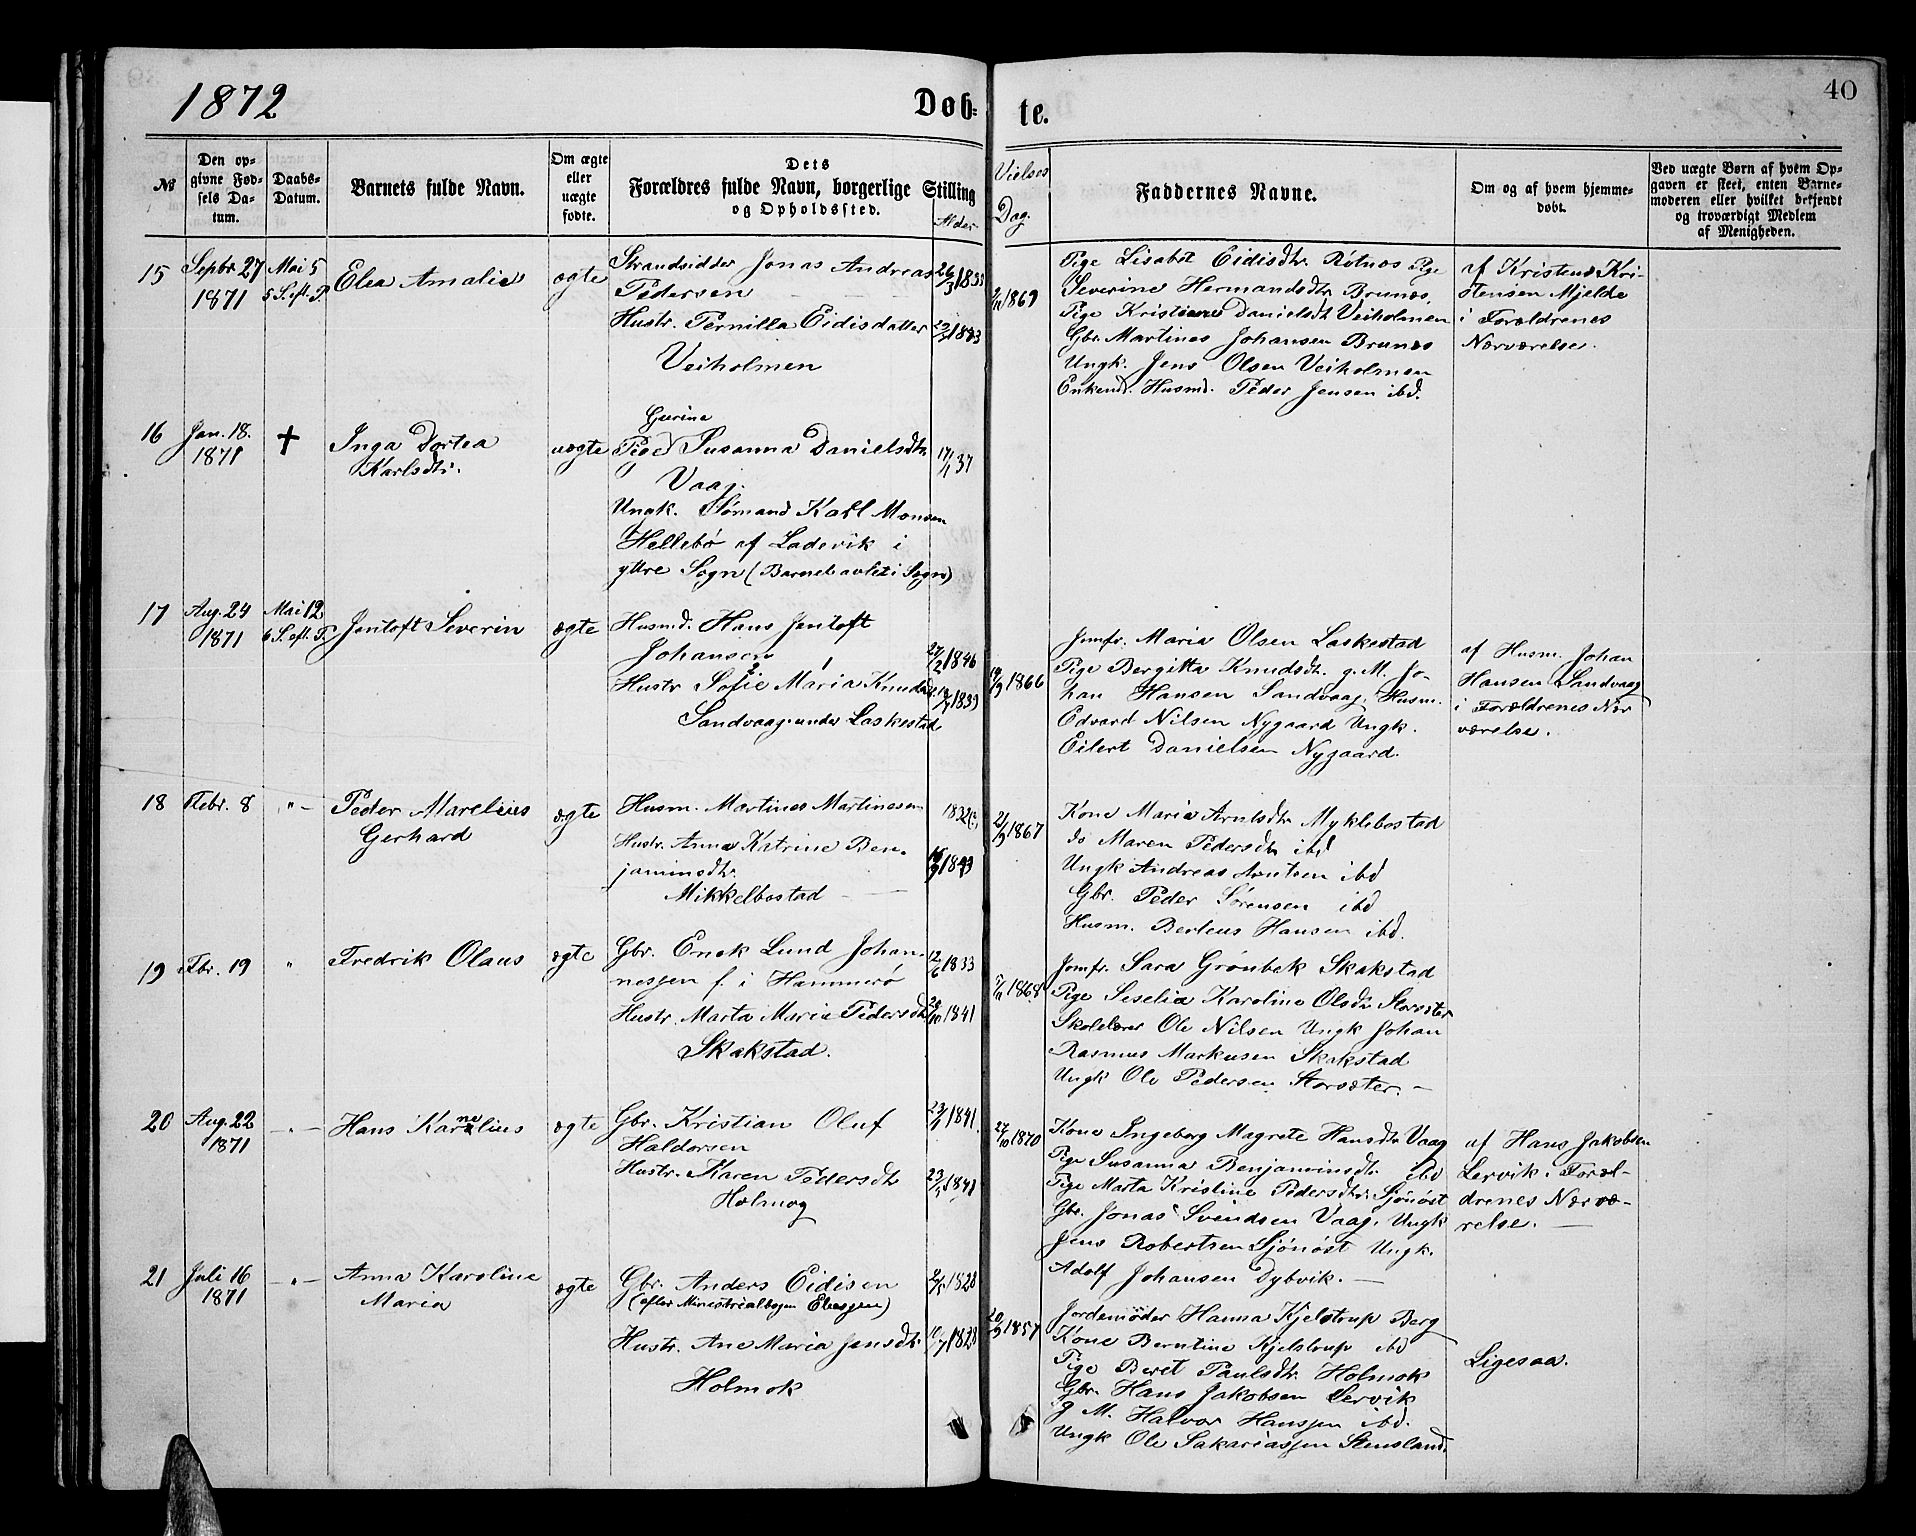 1872
Døb-
te.
40
№
Den op-
givne Fød-
sels Da-
tum.
Daabs-
Datum.
Barnets fulde Navn.
Om ægte
eller
uægte
fødte.
Dets
Forældres fulde Navn, borgerlige Stilling
og Opholdssted.
Alder
Vielses
Dag.
Faddernes Navne.
Om og af hvem hjemme-
døbt.
Ved uægte Børn af hvem Op-
gaven er skeet, enten Barne-
moderen eller hvilket bekjendt
og troværdigt Medlem
af Menigheden.
15
Septbr 27
1871
Mai 5
5 S. eft. P
Elea Amalie
ægte
Strandsidder Jonas Andreas
Pedersen
Hustr. Pernilla Eidisdatter
Veiholmen
1869
Pige Lisabet Eidisdtr. Rotnes Pige
Severine Hermandsdtr Brunes,
Pige Kristiane Danielsdt Veiholmen
Gbr. Martines Johansen Brunes
Ungk. Jens Olsen Veiholmen
Enkemd. Husmd. Peder Jensen ibd.
af Kristens Kri-
stensen Mjelde
i Forældrenes
Nærværelse.
16
Jan. 18.
1871
✝
Inga Dortea
Karlsdtr.
uægte
Gurine
Pige Susanna Danielsdtr
Vaag.
17/1 37
Ungk. Sømand Karl Monsen
Hellebø af Ladevik i
yttre Sogn (Barnet avlet i Sogn)
17
Aug. 24
1871
Mai 12
6 S. eft. P.
Jentoft Severin
ægte
Husmd. Hans Jentoft
Johansen
27/2 1846
Hustr Sofie Maria Knudsdt
Sandvaag under Laskestad
1866
Jomfr. Maria Olsen Laskestad
Pige Bergitta Knudsdtr. g. M. Jo-
han Hansen Sandvaag, Husm.
Edvard Nilsen Nygaard Ungk.
Eilert Danielsen Nygaard.
af Husm. Johan
Hansen Sandvaag
i Forældrenes Nær
værelse.
18
Febr. 8
-"-
Peder Marelius
Gerhard
ægte
Husm. Martines Martinesen
1832(?)
Hustr. Anna Katrine Ben-
jaminsdtr.
Mikkelbostad
1867
Kone Maria Arntsdtr Myklebostad
do Maren Pedersdtr ibd
Ungk Andreas Arntsen ibd
Gbr. Peder Sørensen ibd
Husm. Berteus Hansen ibd.
19
Fbr. 19
"
Fredrik Olaus
ægte
Gbr. Enok Lund Johan-
nessen f. i Hammerø
12/6 1833
Hustr. Marta Maria Pedersdtr
1841
Skakstad.
1868
Jomfr. Sara Grønbek Skakstad
Pige Seselia Karoline Olsdtr Storsæter
Skolelærer Ole Nilsen Ungk Johan
Rasmus Markusen Skakstad
Ungk Ole Pedersen Storsæter.
20
Aug. 22
1871
-"-
Hans Karnelius
ne
ægte
Gbr. Kristian Oluf
Haldorsen
1841.
Hustr. Karen Pedersdtr
Holmog
27/10 1870
Kone Ingeborg Magrete Hansdtr Vaag
Pige Susanna Benjaminsdtr. ibd
Pige Marta Kristine Pedersdtr. Sjønøst
Gbr. Jonas Svendsen Vaag, Ungk
Jens Robertsen Sjønøst Ungk.
Adolf Johansen Dybvik.
af Hans Jakobsen
Lervik i Foræl-
drenes Nærvæ-
relse.
21
Juli 16
1871
-"-
Anna Karoline
Maria
ægte
Gbr. Anders Eidisen
(efter Ministrialbogen Eliessen)
1828
Hustr. Ane Maria Jensdtr.
1828
Holmok
20/9 1857
Jordemoder Hanna Kjelstrup Berg
Kone Berntine Kjelstrup ibd
Pige Beret Paulsdtr. Holmok
Gbr. Hans Jakobsen Lervik
g. M. Halvor Hanssen ibd.
Ungk Ole Sakariassen Stensland.
Ligesaa.